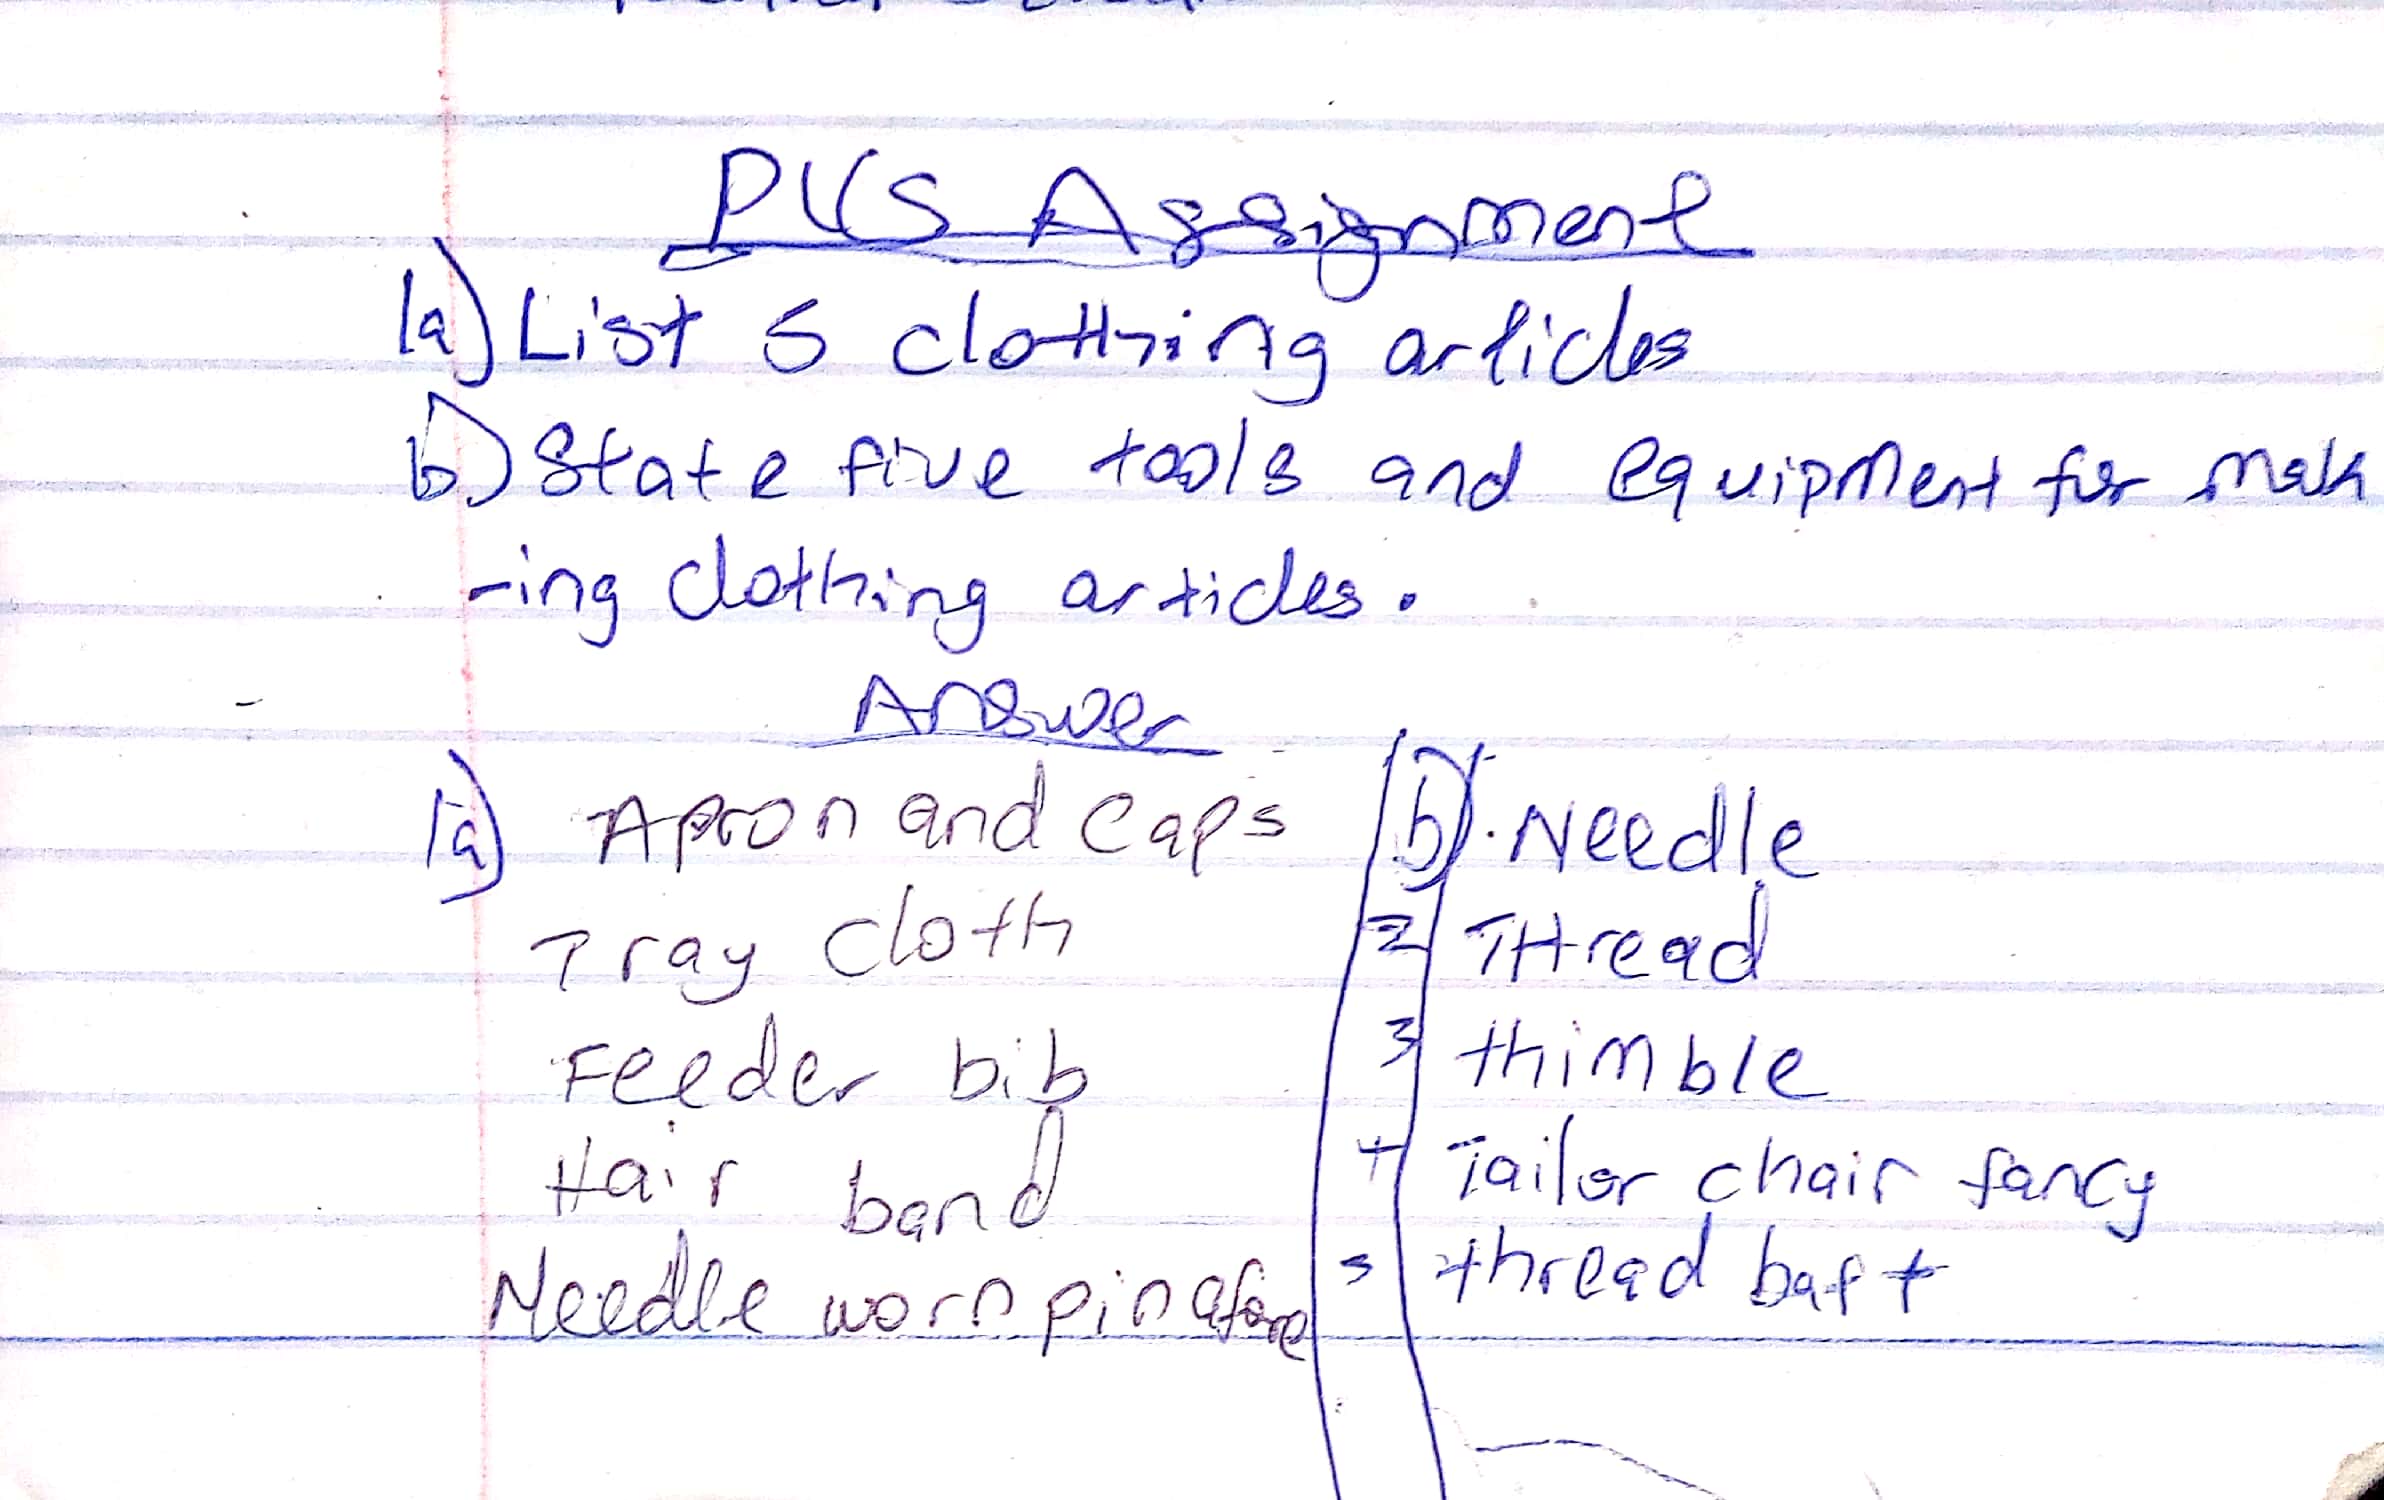 PVS Assignment
1a) List 5 clothing articles
b) State five tools and equipment for mak
-ing clothing articles.
Answer
1a) Apron and caps
Tray cloth
Feeder bib
Hair band
Needle worn pinafore
b). Needle
2 THread
3 thimble
4 Tailor chair fancy
5 thread baft